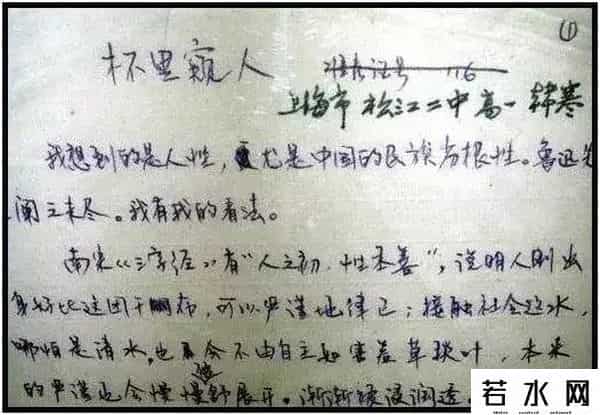 ①
杯里窥人
准考证号 116
上海市松江二中高一 韩寒
我想到的是人性，尤是中国的民族劣根性。鲁迅先
阐之未尽。我有我的看法。
南宋《三字经》有“人之初，性本善”，说明人刚出
身好比这团干布，可以严谨地律己；接触社会这水，
哪怕是清水，也会不由自主如害羞草 叶，本来
的严谨也会慢慢地舒展开，渐渐被浸润透。
若水网